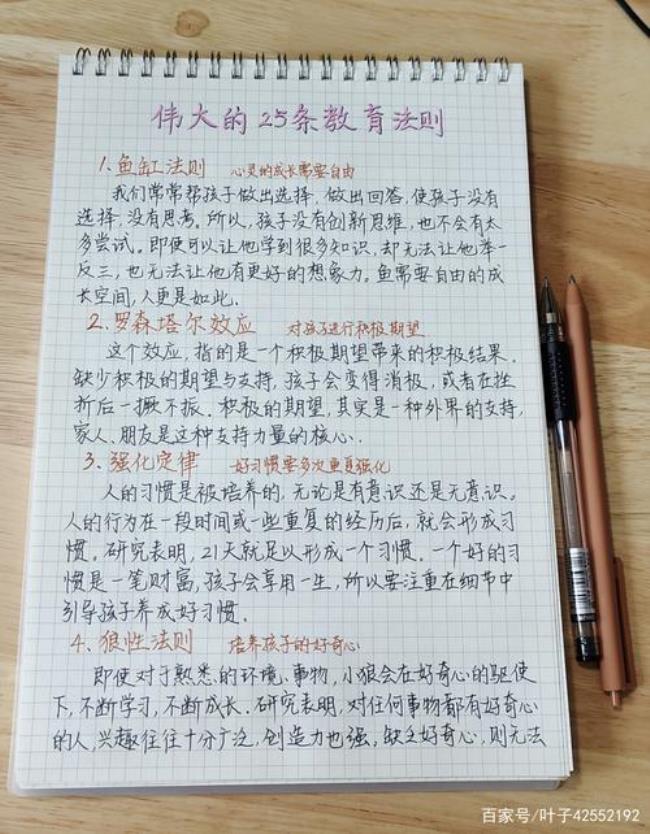 伟大的25条教育法则
1.鱼缸法则 心灵的成长需要自由
我们常常帮孩子做出选择,做出回答,使孩子没有
选择,没有思考。所以,孩子没有创新思维,也不会有太
多尝试。即使可以让他学到很多知识,却无法让他举一
反三,也无法让他有更好的想象力。鱼需要自由的成
长空间,人更是如此.
2.罗森塔尔效应 对孩子进行积极期望
这个效应,指的是一个积极期望带来的积极结果.
缺少积极的期望与支持,孩子会变得消极,或者在挫
折后一撅不振.积极的期望,其实是一种外界的支持,
家人、朋友是这种支持力量的核心.
3.强化定律 好习惯要多次重复强化
人的习惯是被培养的,无论是有意识还是无意识。
人的行为在一段时间或一些重复的经历后,就会形成习
惯。研究表明,21天就足以形成一个习惯.一个好的习
惯是一笔财富,孩子会享用一生,所以要注重在细节中
引导孩子养成好习惯.
4.狼性法则 培养孩子的好奇心
即使对于熟悉的环境、事物,小狼会在好奇心的驱使
下,不断学习,不断成长.研究表明,对任何事物都有好奇心
的人,兴趣往往十分广泛,创造力也强,缺乏好奇心,则无法
百家号/叶子42552192